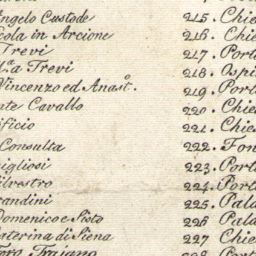 Angelo Custode 215. Chie
cola in Arcione 216. Chie
Trevi 217. Port
M.a a Trevi 218. Ospi
Vincenzo ed Anast.o 219. Port
nte Cavallo 220. Chie
ificio 221. Chie
Consulta 222. Fon
igliosi 223. Port
ilvestro 224. Port
randini 225. Pala
Domenico e Sisto 226 Pala
aterina di Siena 227 Chie
Foro Traiano 228 Port